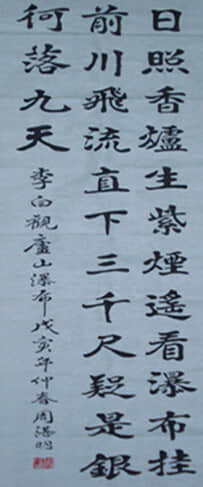 日照香爐生紫煙遙看瀑布挂
前川飛流直下三千尺疑是銀
何落九天
李白觀廬山瀑布戊亥年仲春周湛明